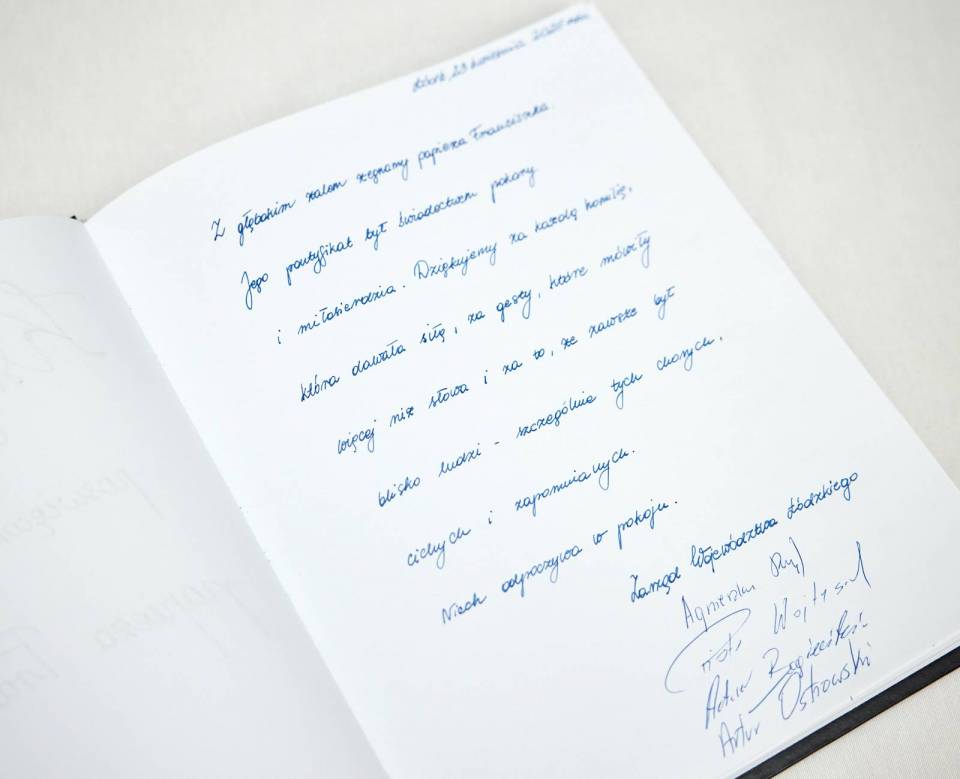 23 kwietnia 2025 roku
Z głębokim żalem żegnamy papieża Franciszka.
Jego pontyfikat był świadectwem pokory
i miłosierdzia. Dziękujemy za każdą homilię,
która dawała siłę, za gesty, które mówiły
więcej niż słowa i za to, że zawsze był
blisko ludzi - szczególnie tych chorych,
cichych i zapomnianych.
Niech odpoczywa w pokoju.
Zarząd Województwa Łódzkiego
Agnieszka
Piotr
Artur
Artur Ostrowski